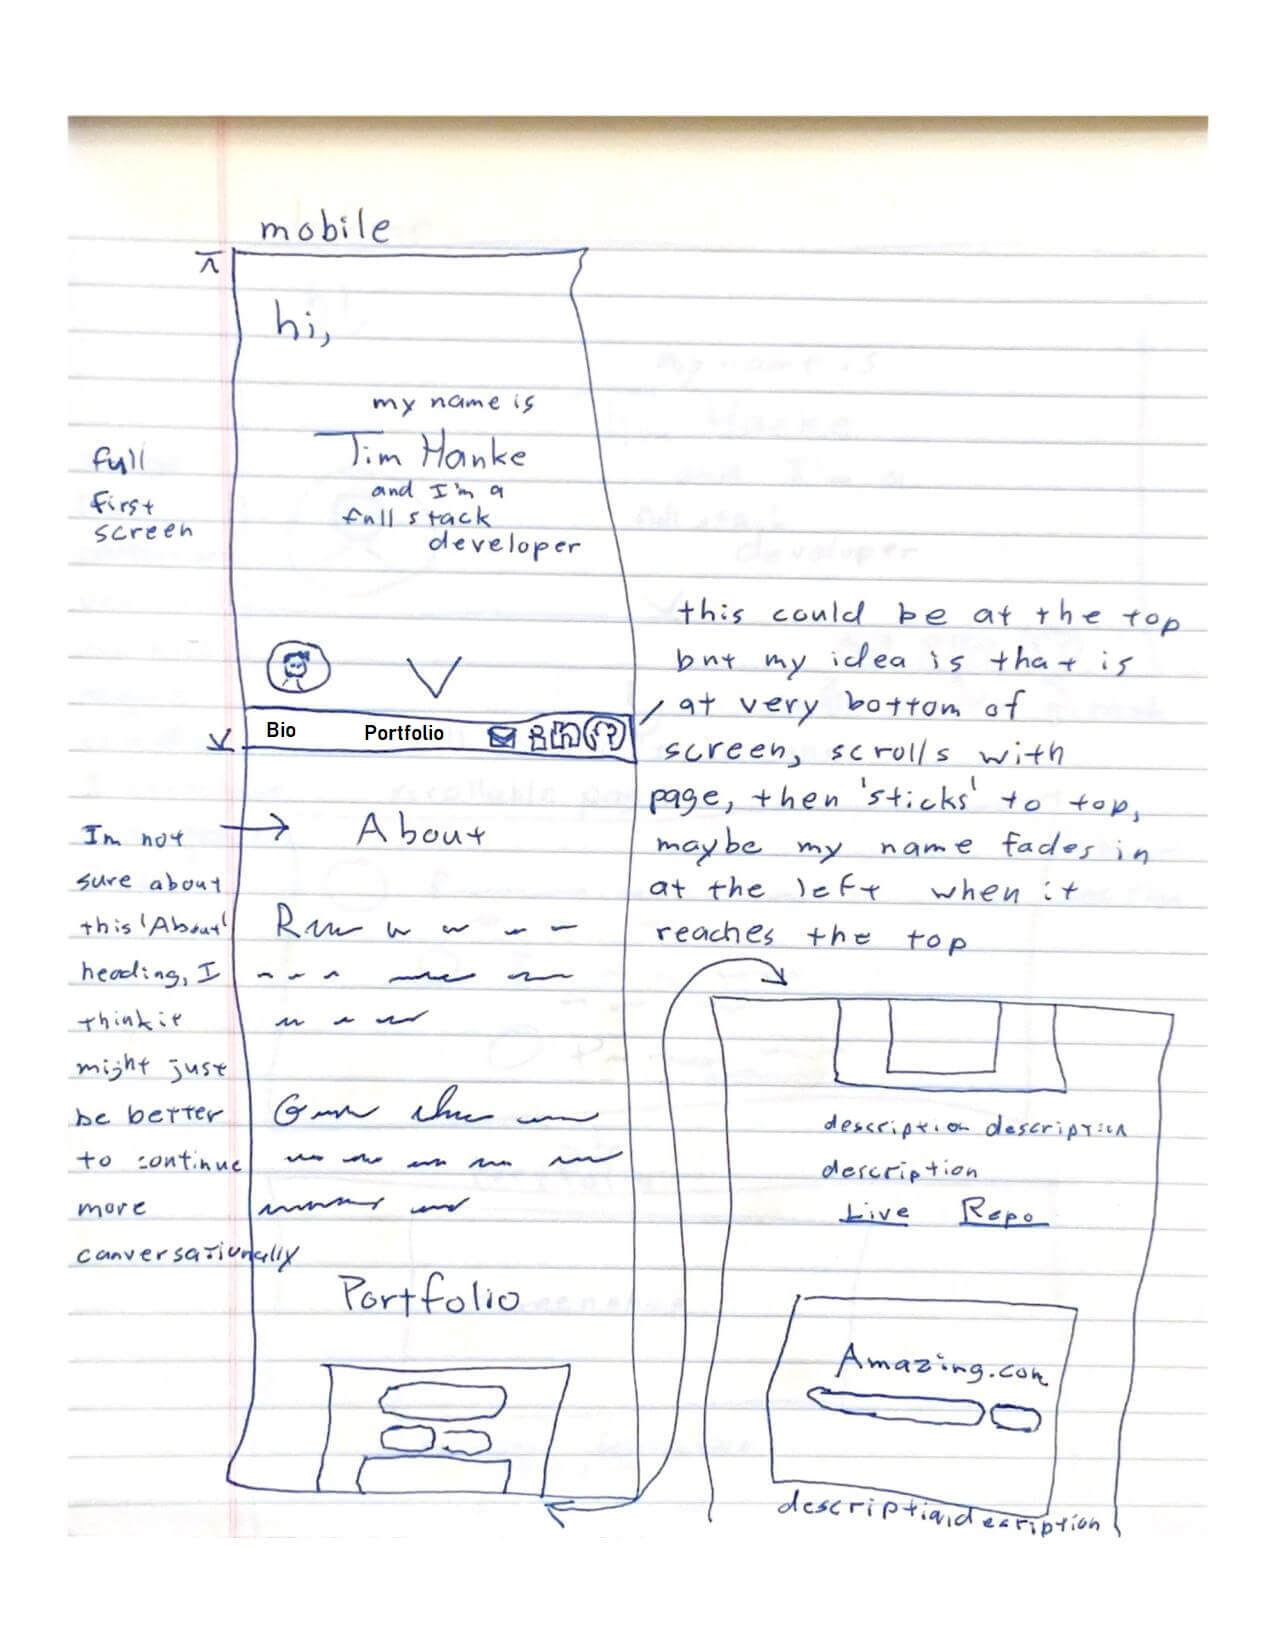 mobile
hi,
my name is
Tim Hanke
and I'm a
full stack
developer
full
first
screen
Bio Portfolio
this could be at the top
but my idea is that is
at very bottom of
screen, scrolls with
page, then 'sticks' to top,
maybe my name fades in
at the left when it
reaches the top
About
I'm not
sure about
this 'About'
heading, I
think it
might just
be better
to continue
more
conversationally
Portfolio
description description
description
Live Repo
Amazing.com
description, description